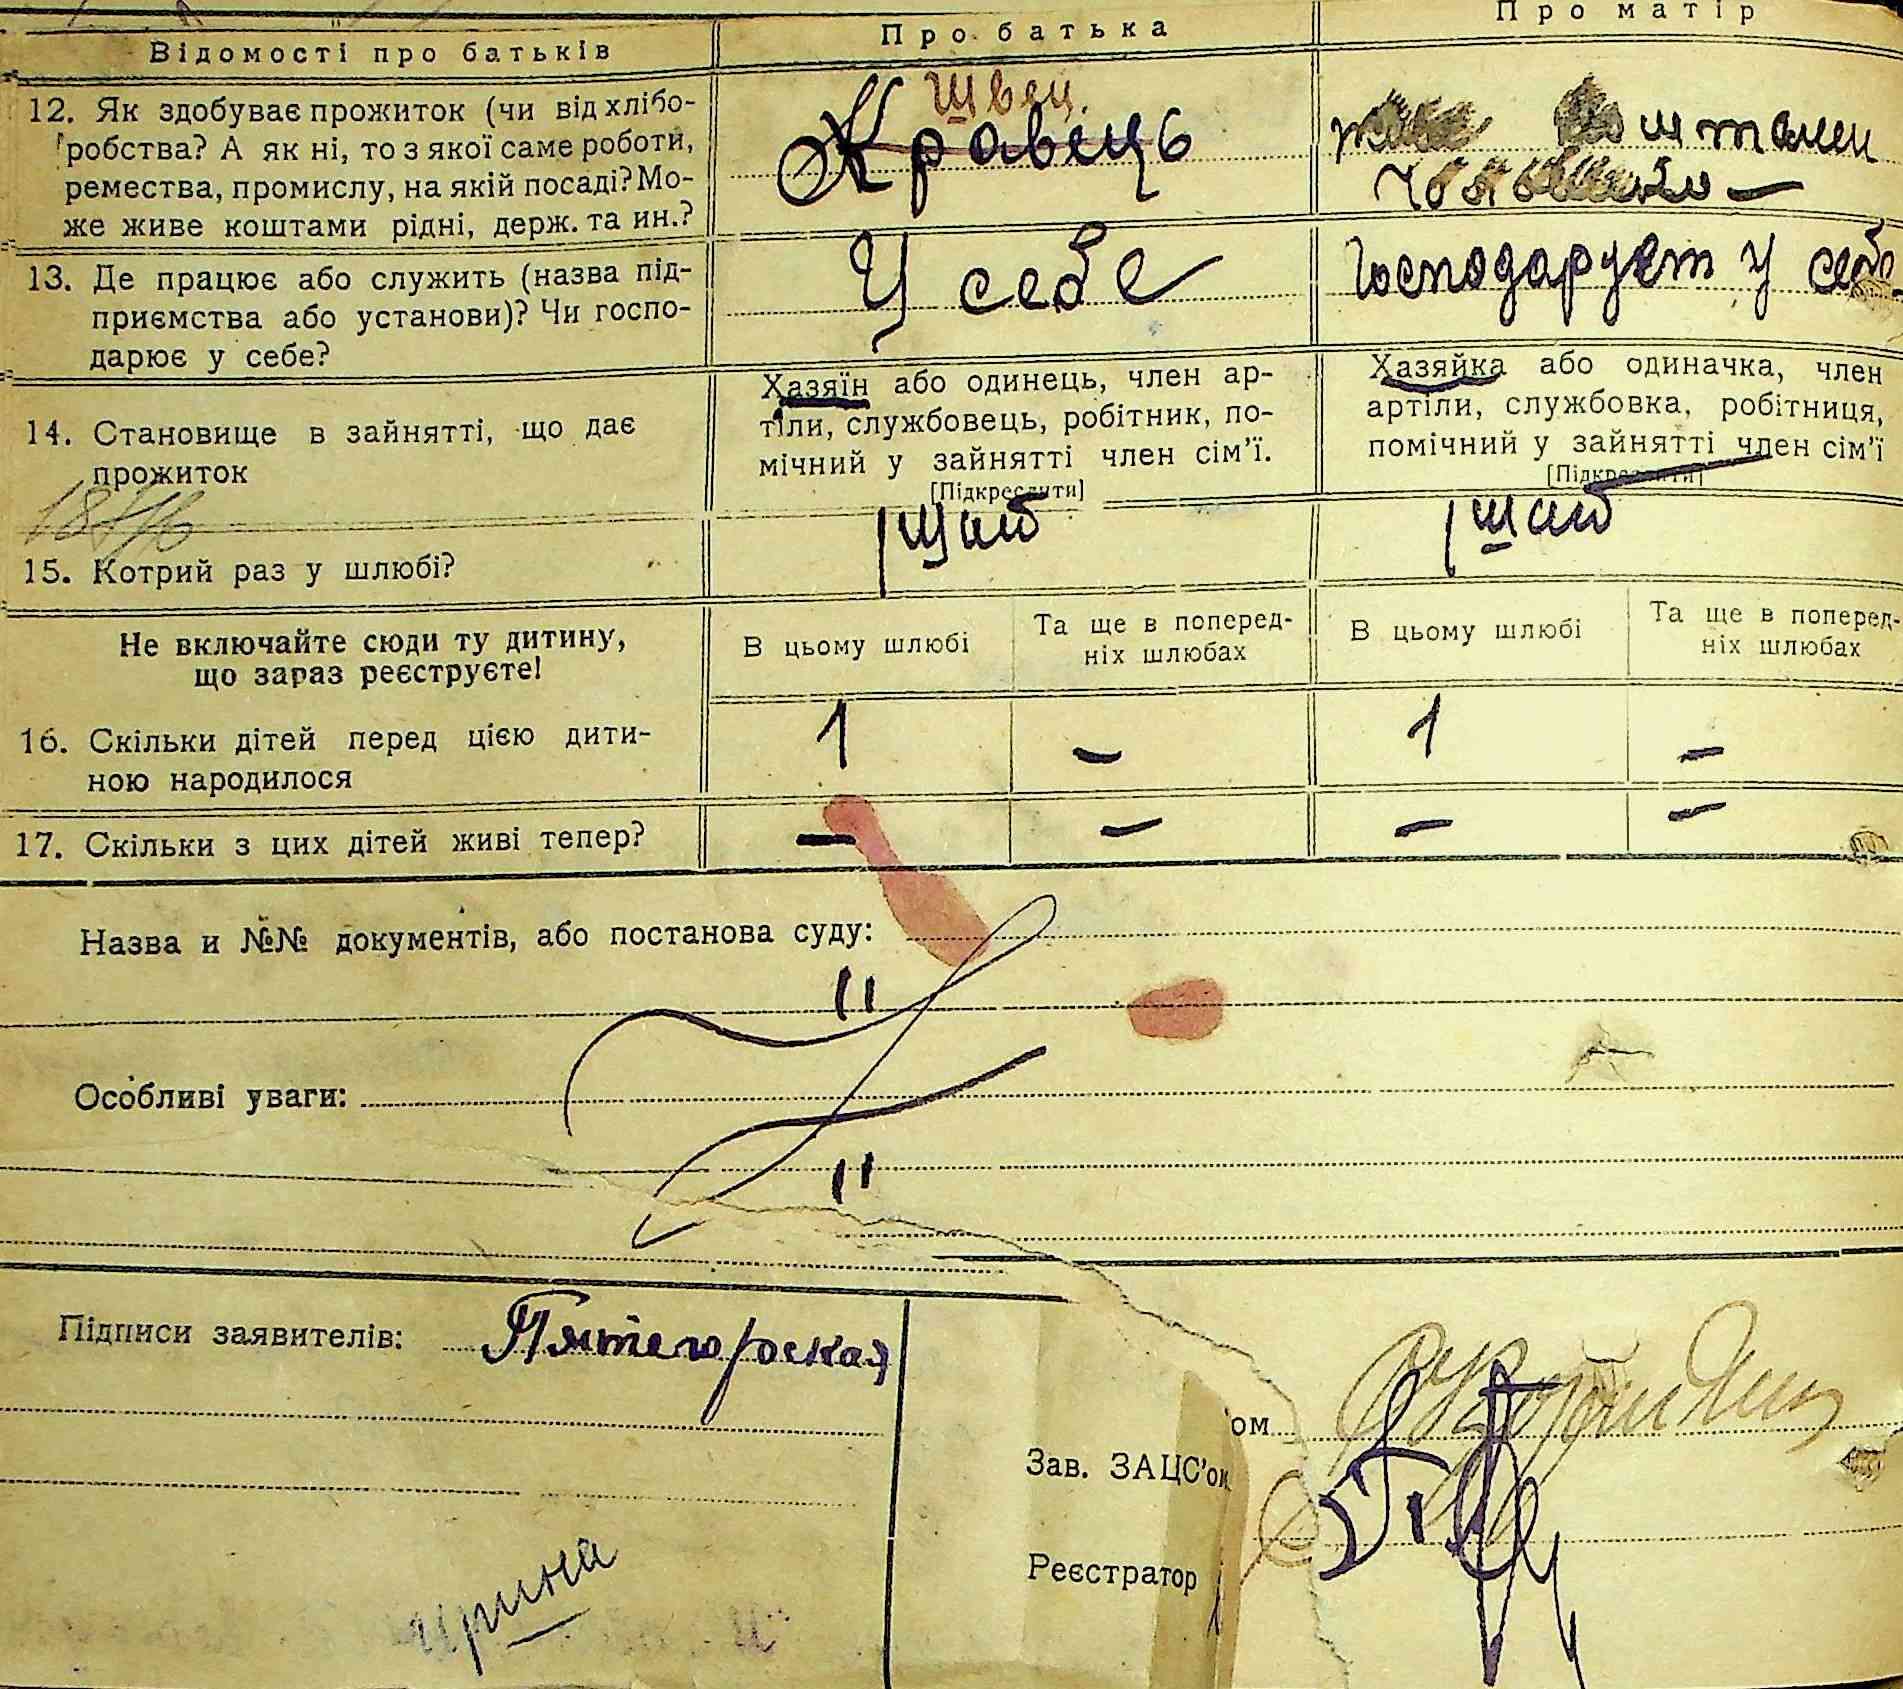 Відомості про батьків
Про батька
Про матір
12. Як здобуває прожиток (чи від хлібо-
робства? А як ні, то з якої саме роботи,
ремества, промислу, на якій посаді? Мо-
же живе коштами рідні, держ. та ин.?
Швец.
Кравець
коштами
чоловіка —
13. Де працює або служить (назва під-
приємства або установи)? Чи госпо-
дарює у себе?
У себе
Господарует у себе
14. Становище в зайнятті, що дає
прожиток
Хазяїн або одинець, член ар-
тіли, службовець, робітник, по-
мічний у зайнятті член сім'ї.
[Підкреслити]
Хазяйка або одиначка, член
артіли, службовка, робітниця,
помічний у зайнятті член сім'ї
[Підкреслити]
15. Котрий раз у шлюбі?
Ішлюб
Ішлюб
Не включайте сюди ту дитину,
що зараз реєструєте!
В цьому шлюбі
Та ще в поперед-
ніх шлюбах
В цьому шлюбі
Та ще в поперед-
ніх шлюбах
16. Скільки дітей перед цією дити-
ною народилося
1 – 1 –
17. Скільки з цих дітей живі тепер?
– – – –
Назва и №№ документів, або постанова суду:
"
Особливі уваги:
"
Підписи заявителів: Пятегорская
ом
Зав. ЗАЦС'ом
Реєстратор
ирина